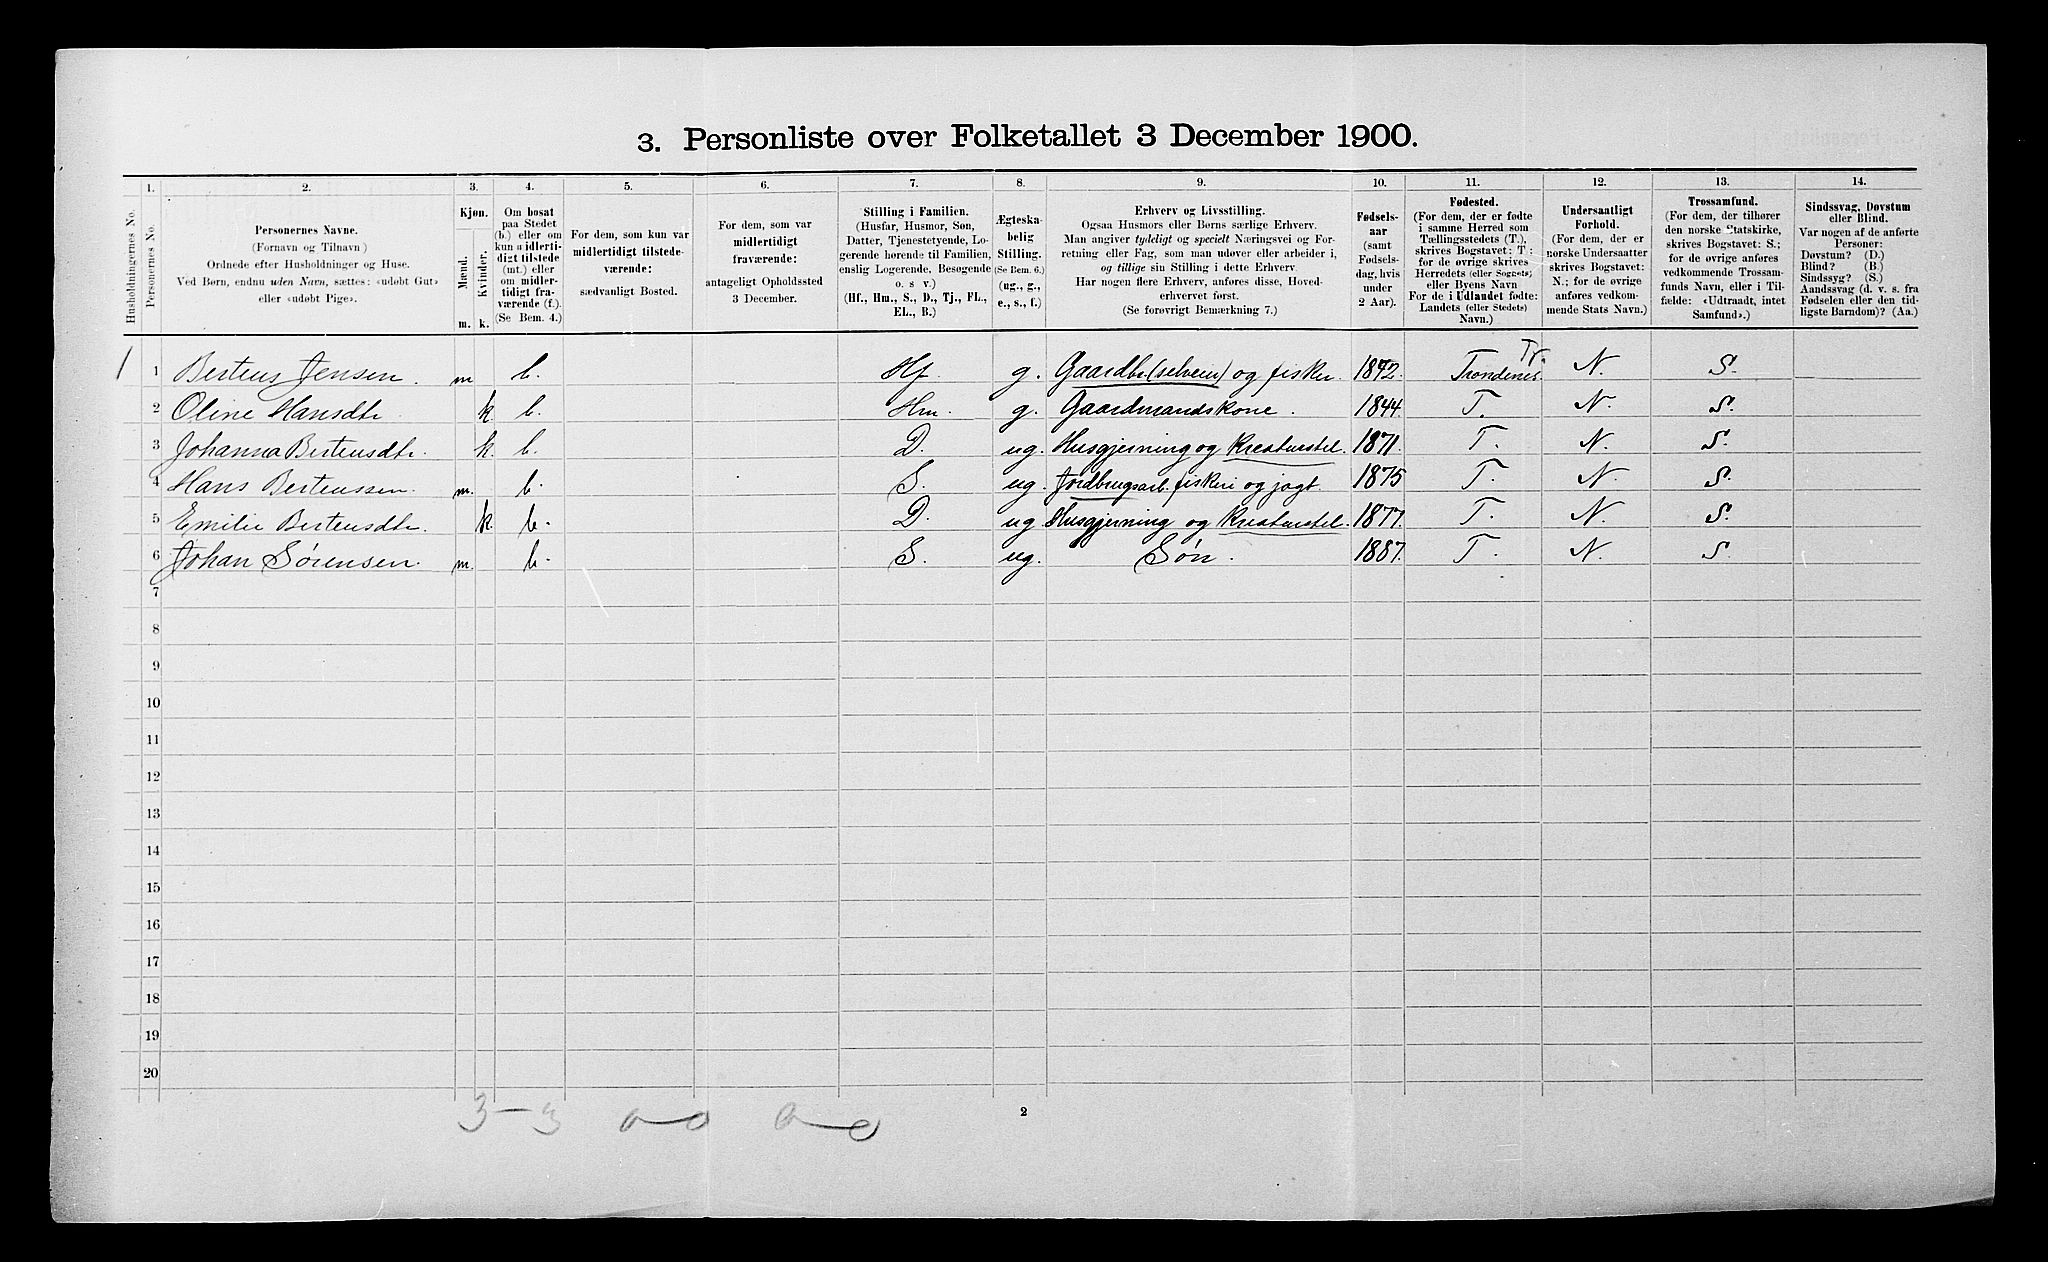 3. Personliste over Folketallet 3 December 1900.
1. 2. 3. 4. 5. 6. 7. 8. 9. 10. 11. 12. 13. 14.
Husholdningernes No.
Personernes No.
Personernes Navne.
(Fornavn og Tilnavn)
Ordnede efter Husholdninger og Huse.
Ved Børn, endnu uden Navn, sættes: «udøbt Gut»
eller «udøbt Pige».
Kjøn.
Mænd.
Kvinder.
m. k.
Om bosat
paa Stedet
(b.) eller om
kun midlerti-
digt tilstede
(mt.) eller
om midler-
tidigt fra-
værende (f.)
(Se Bem. 4.)
For dem, som kun var
midlertidigt tilstede-
værende:
sædvanligt Bosted.
For dem, som var
midlertidigt
fraværende:
antageligt Opholdssted
3 December.
Stilling i Familien.
(Husfar, Husmor, Søn,
Datter, Tjenestetyende, Lo-
gerende hørende til Familien,
enslig Logerende, Besøgende
o. s v.)
(Hf., Hm., S., D., Tj., FL.,
EL., B.)
Ægteska-
belig
Stilling.
(Se Bem. 6.)
(ug., g.,
e., s., f.)
Erhverv og Livsstilling.
Ogsaa Husmors eller Børns særlige Erhverv.
Man angiver tydeligt og specielt Næringsvei og For-
retning eller Fag, som man udøver eller arbeider i,
og tillige sin Stilling i dette Erhverv.
Har nogen flere Erhverv, anføres disse, Hoved-
erhvervet først.
(Se forøvrigt Bemærkning 7.)
Fødsels-
aar
(samt
Fødsels-
dag, hvis
under
2 Aar).
Fødested.
(For dem, der er fødte
i samme Herred som
Tællingsstedets (T.),
skrives Bogstavet: T:
for de øvrige skrives
Herredets (eller Sognets)
eller Byens Navn
For de i Udlandet fødte:
Landets (eller Stedets)
Navn.)
Undersaatligt
Forhold.
(For dem, der er
norske Undersaatter
skrives Bogstavet:
N.; for de øvrige
anføres vedkom-
mende Stats Navn.)
Trossamfund.
(For dem, der tilhører
den norske Statskirke,
skrives Bogstavet: S.;
for de øvrige anføres
vedkommende Trossam-
funds Navn, eller i Til-
fælde: «Udtraadt, intet
Samfund».)
Sindssvag, Døvstum
eller Blind.
Var nogen af de anførte
Personer:
Døvstum? (D.)
Blind? (B.)
Sindssyg? (S.)
Aandssvag (d. v. s. fra
Fødselen eller den tid-
ligste Barndom)? (Aa.)
Tr.
1 1 Berteus Jensen. m b. Hf. g. Gaardbr. (selveier) og fisker 1842. Trondenes. N. S.
2 Oline Hansdtr k b. Hm. g. Gaardmandskone. 1844. T. N. S.
3 Johanna Berteusdtr. k. b. D. ug. Husgjerning og Kreaturstel. 1871. T. N. S.
4 Hans Berteussen. m. b. S. ug. Jordbrugsarb. fiskeri og jagt. 1875 T. N. S.
5 Emilie Berteusdtr. k. b. D. ug Husgjerning og Kreaturstel. 1877. T. N. S.
6 Johan Sørensen. m. b. S. ug. Søn. 1887. T. N. S.
7
8
9
10
11
12
13
14
15
16
17
18
19
20
3-3 0-0 0-0
2